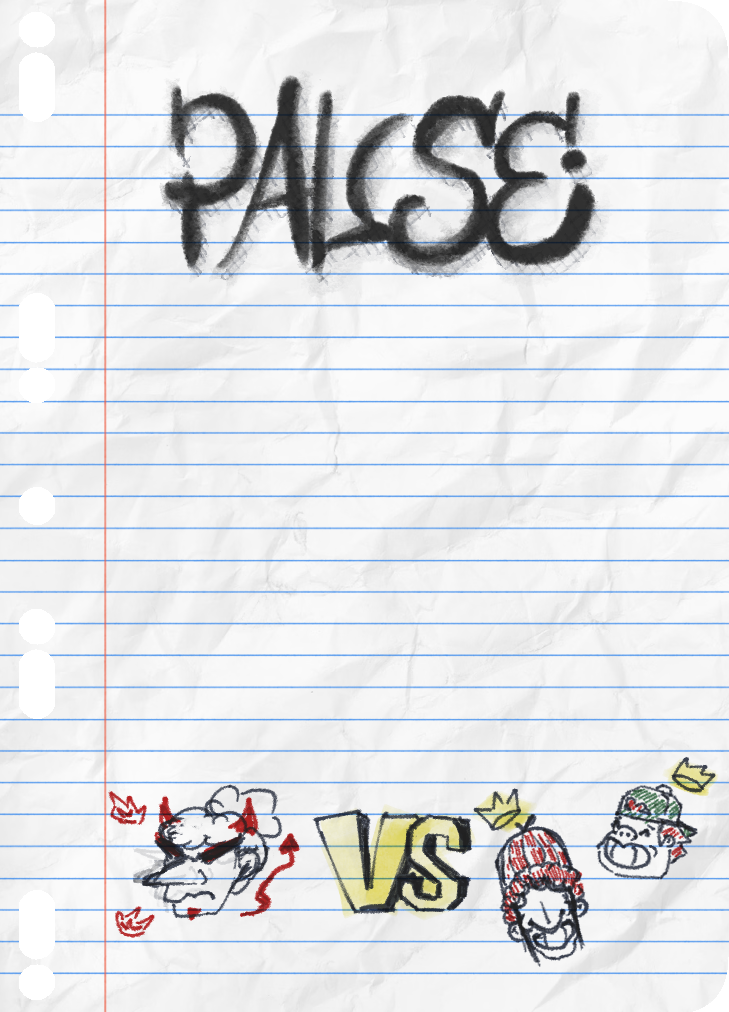 PAUSE
VS